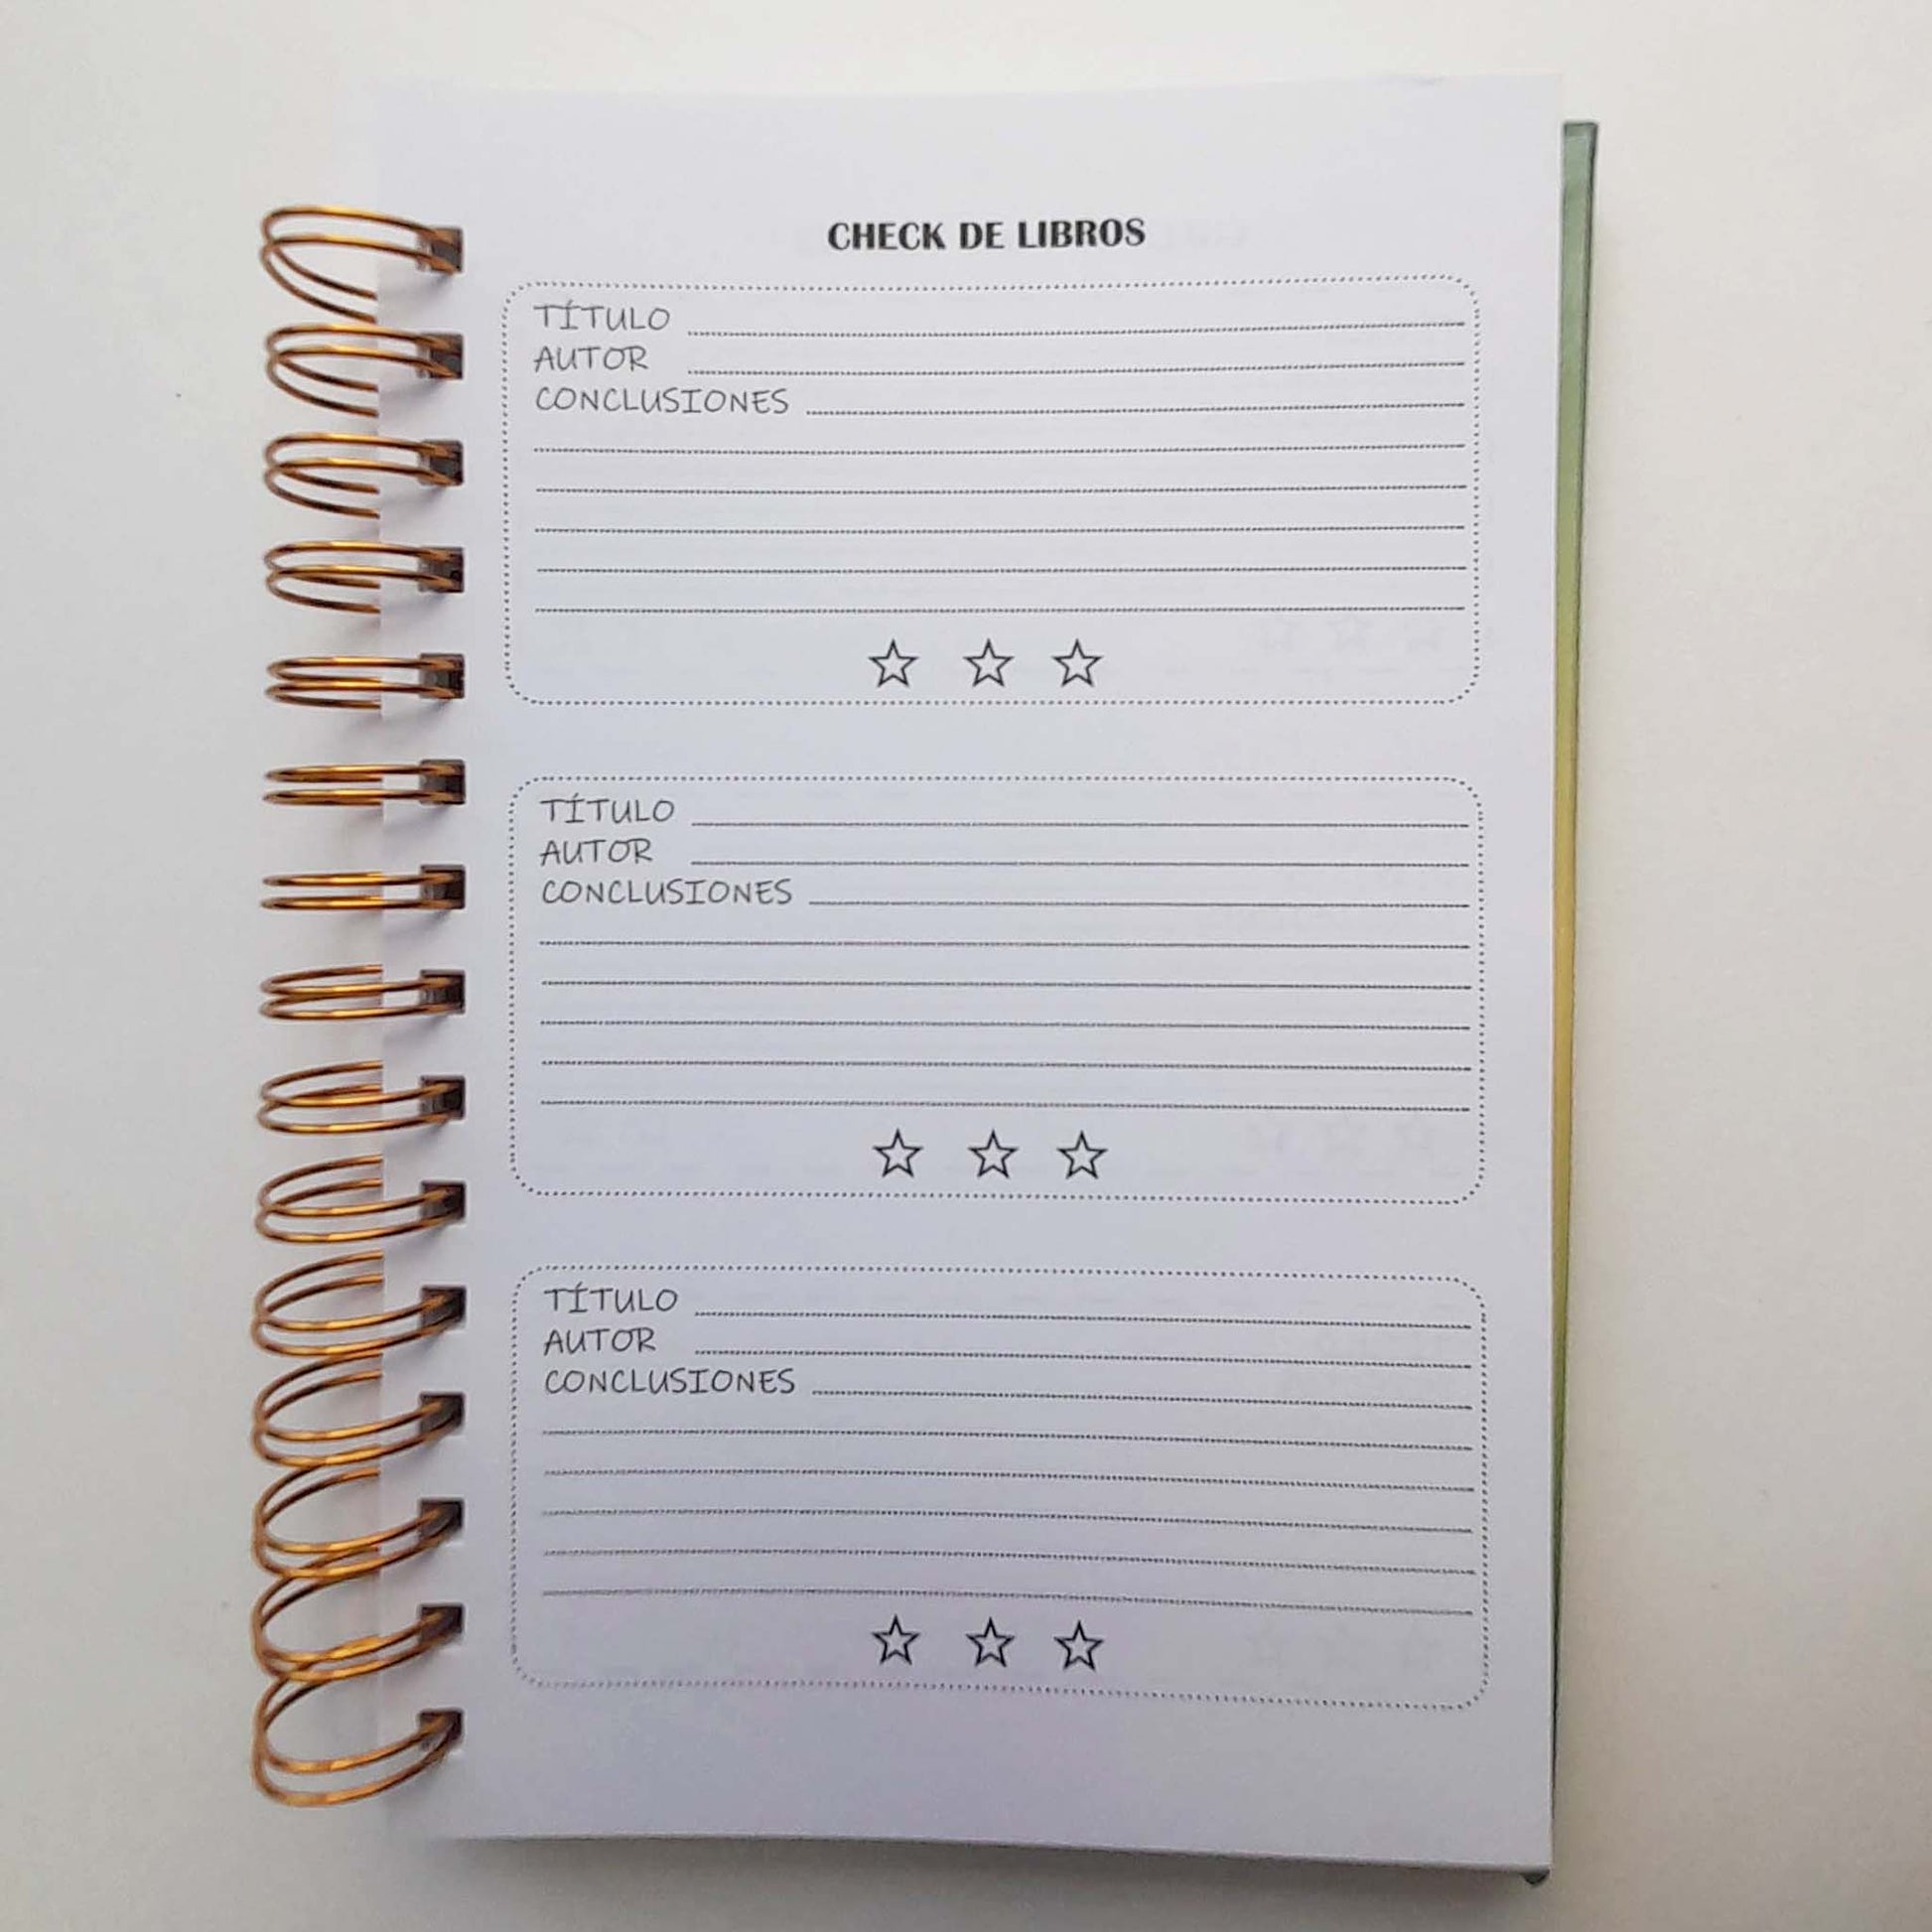 CHECK DE LIBROS
TÍTULO
AUTOR
CONCLUSIONES
TÍTULO
AUTOR
CONCLUSIONES
TÍTULO
AUTOR
CONCLUSIONES